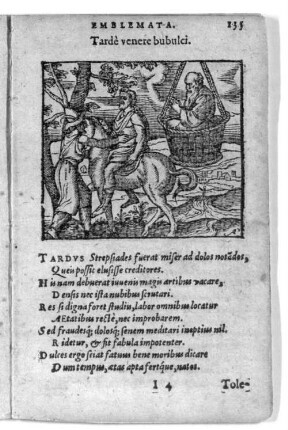 EMBLEMATA. 135
Tardè venere bubulci.
TARDVS Strepsiades fuerat miser ad dolos notūdos,
Queis possit elusisse creditores.
Hunc nam debuerat iuvenis magis artibus vacare,
Densis nec ista nubibus scrutari.
Res si digna foret studiu, labor omnibus locatur
AEtatibus rectè, nec improbarem.
Sed fraudesq́; dolosq́; senem meditari ineptius nil.
Ridetur, & fit fabula impotenter.
Dulces ergo sciat fatuus bene moribus dicare
Dum tempus, ætas apta fertque, natos.
I 4 Tole-